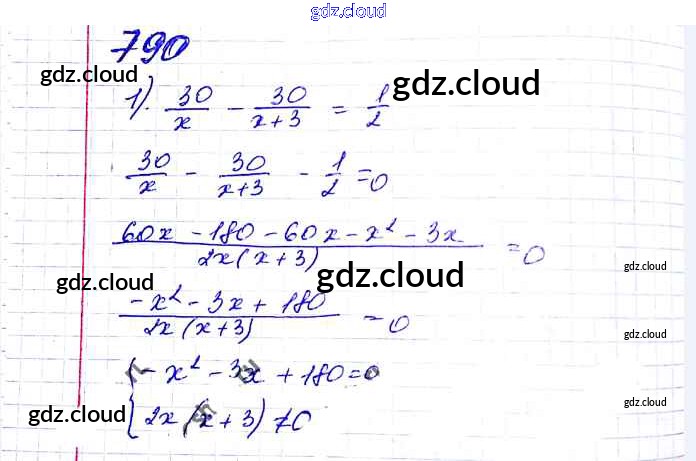 gdz.cloud
790
gdz.cloud
gdz.cloud
1). 30/x - 30/(x+3) = 1/2
30/x - 30/(x+3) - 1/2 = 0
(60x - 180 - 60x - x² - 3x)/(2x(x+3)) = 0
gdz.cloud
gdz.cloud
gdz.cloud
(-x² - 3x + 180)/(2x(x+3)) = 0
gdz.cloud
{-x² - 3x + 180 = 0
gdz.cloud
gdz.cloud
{2x(x+3) ≠ 0